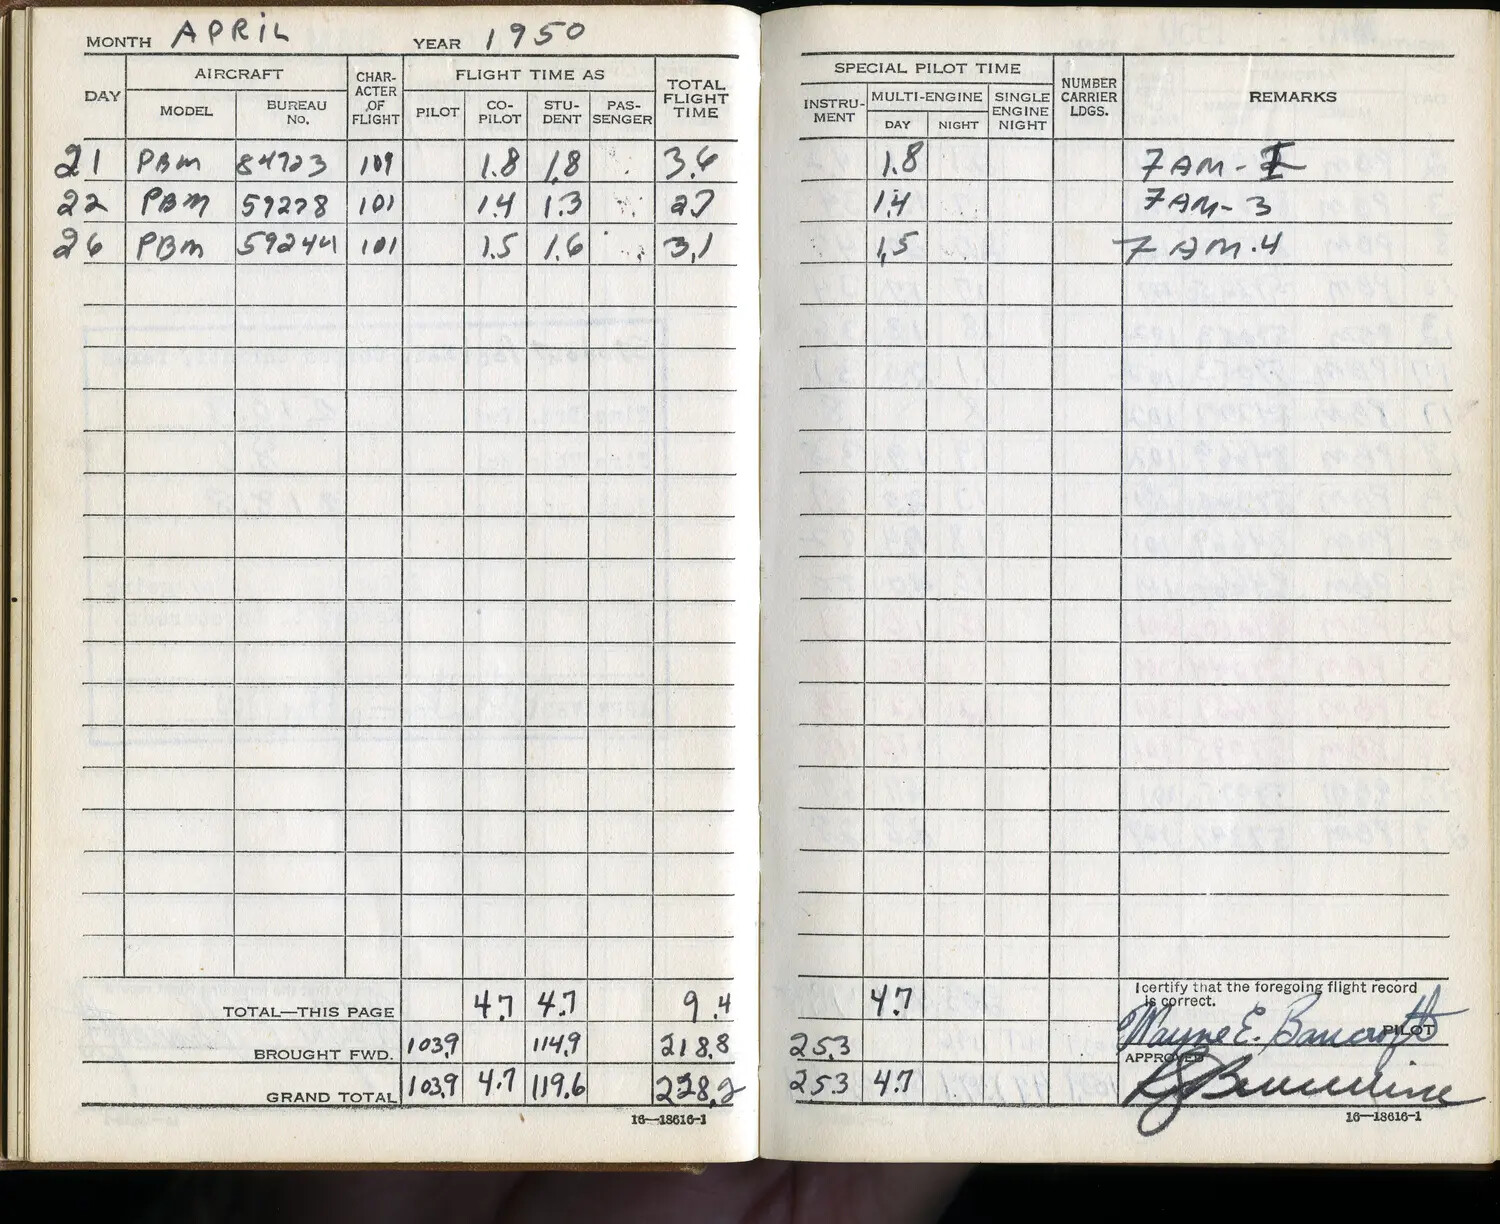 MONTH APRIL YEAR 1950
DAY AIRCRAFT CHAR-ACTER OF FLIGHT FLIGHT TIME AS TOTAL FLIGHT TIME
MODEL BUREAU No. PILOT CO-PILOT STU-DENT PAS-SENGER
21 PBM 84723 109 1.8 1.8 3.6
22 PBM 59278 101 1.4 1.3 2.7
26 PBM 59244 101 1.5 1.6 3.1
TOTAL—THIS PAGE 4.7 4.7 9.4
BROUGHT FWD. 103.9 114.9 218.8
GRAND TOTAL 103.9 4.7 119.6 228.2
16—18616-1
SPECIAL PILOT TIME NUMBER CARRIER LDGS. REMARKS
INSTRU-MENT MULTI-ENGINE SINGLE ENGINE NIGHT
DAY NIGHT
1.8 7AM-
1.4 7AM-3
1.5 7AM-4
4.7 I certify that the foregoing flight record
is correct.
Wayne E. Bancroft PILOT
25.3
APPROVED
25.3 4.7
16—18616-1